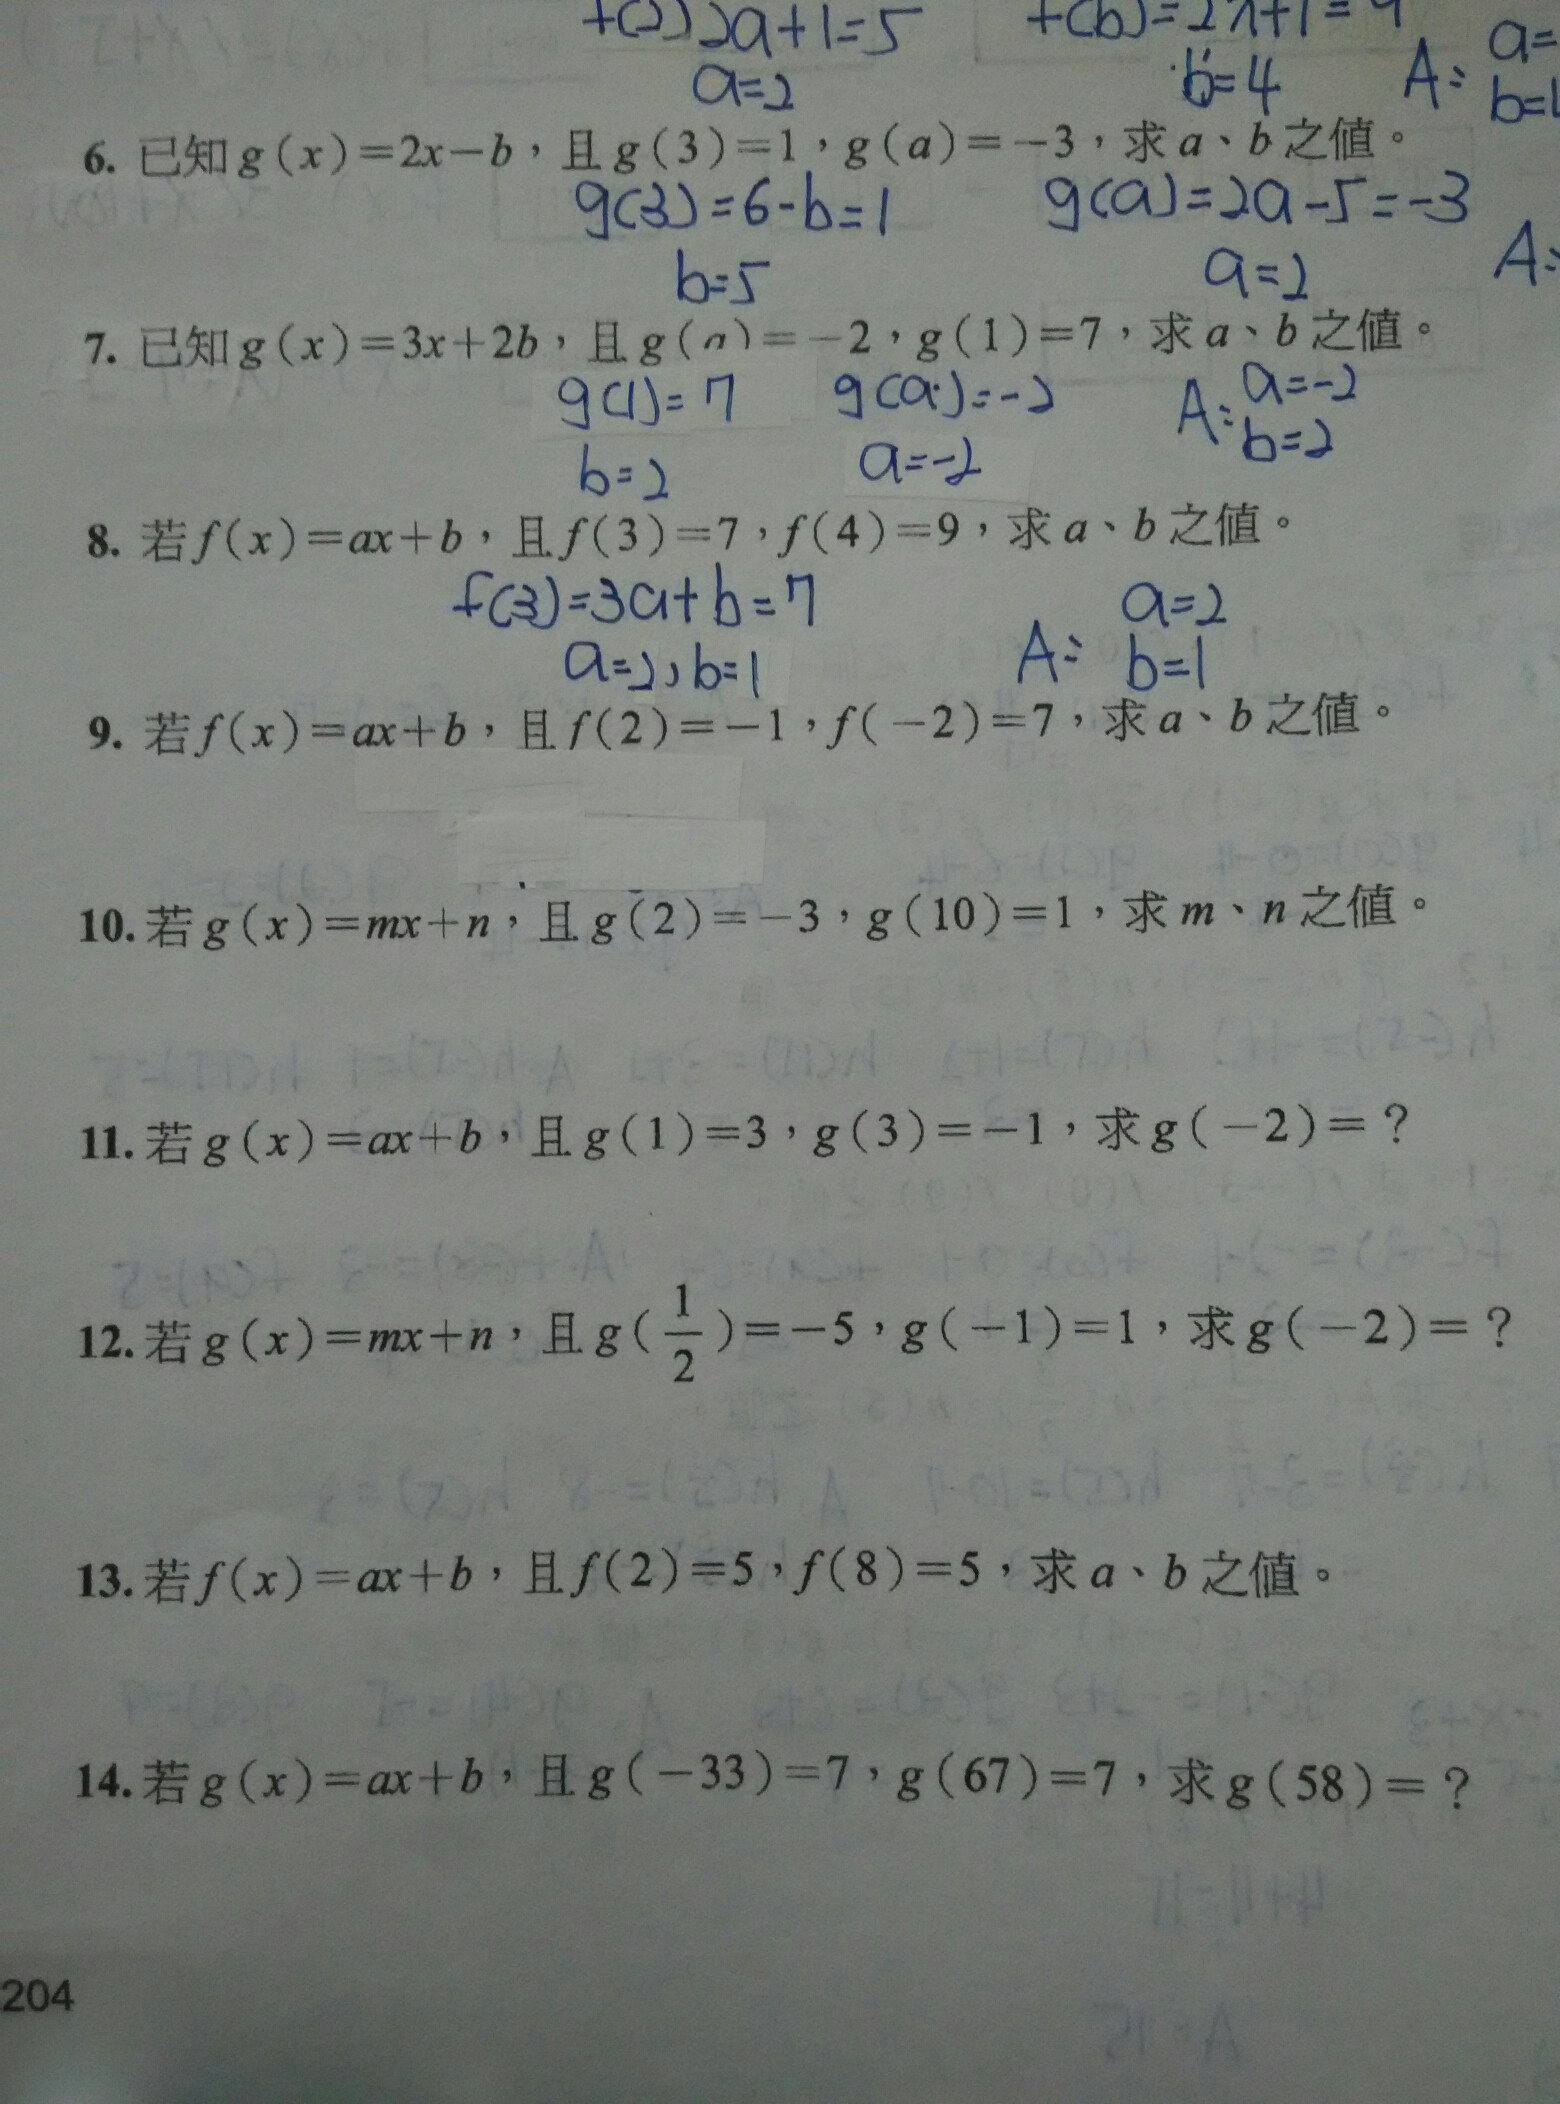 f(2)2a+1=5 f(b)=2x+1=9
a=2 b=4 A: a=
b=
6. 已知g(x)=2x-b，且g(3)=1，g(a)=-3，求a、b之值。
g(3)=6-b=1 g(a)=2a-5=-3
b=5 a=2 A:
7. 已知g(x)=3x+2b，且g(a)=-2，g(1)=7，求a、b之值。
g(1)=7 g(a)=-2 A: a=-2
b=2 a=-2 b=2
8. 若f(x)=ax+b，且f(3)=7，f(4)=9，求a、b之值。
f(3)=3a+b=7 a=2
a=2,b=1 A: b=1
9. 若f(x)=ax+b，且f(2)=-1，f(-2)=7，求a、b之值。
10. 若g(x)=mx+n，且g(2)=-3，g(10)=1，求m、n之值。
11. 若g(x)=ax+b，且g(1)=3，g(3)=-1，求g(-2)=？
12. 若g(x)=mx+n，且g(1/2)=-5，g(-1)=1，求g(-2)=？
13. 若f(x)=ax+b，且f(2)=5，f(8)=5，求a、b之值。
14. 若g(x)=ax+b，且g(-33)=7，g(67)=7，求g(58)=？
204